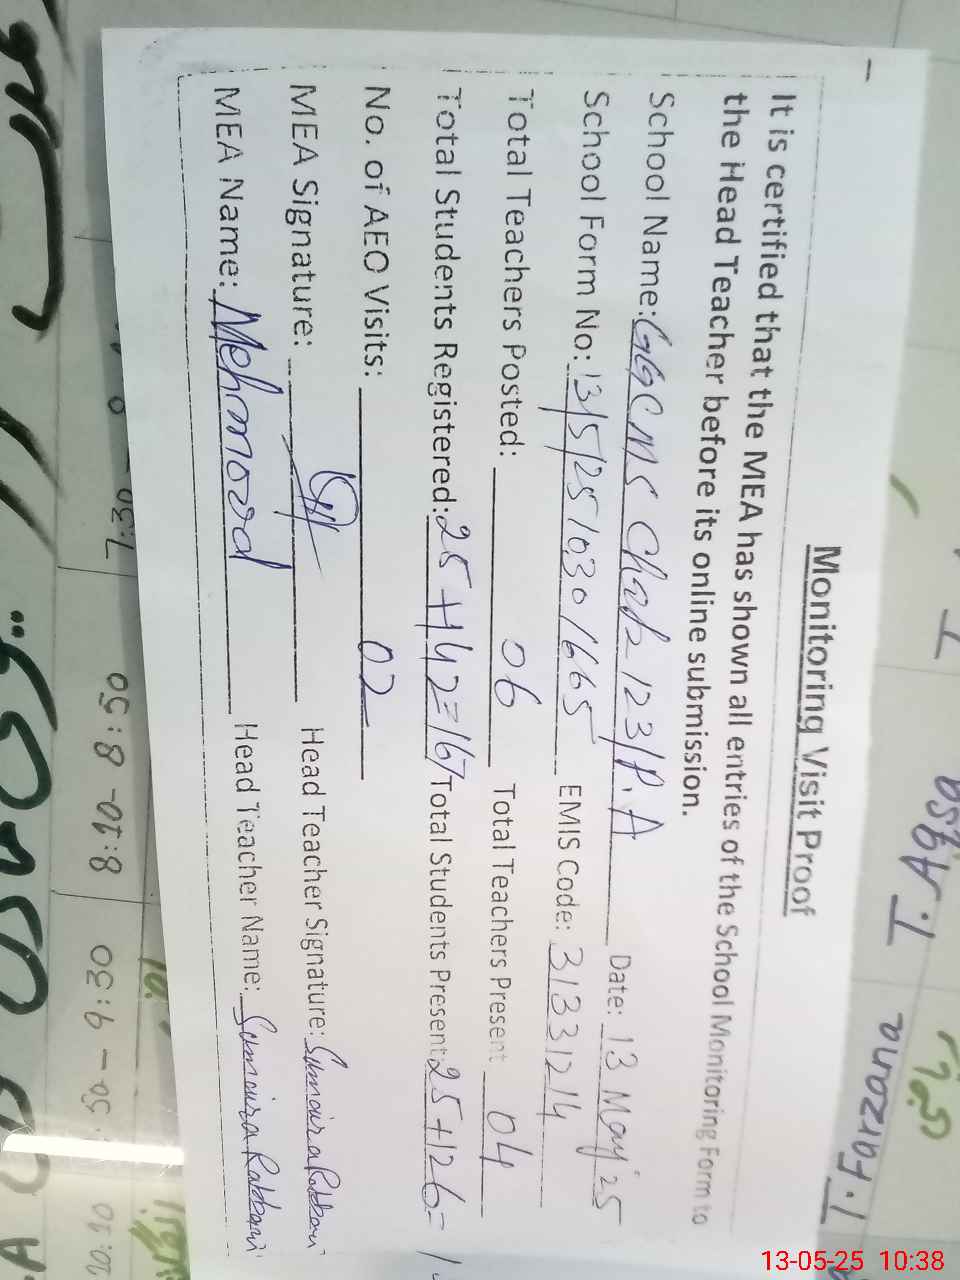 Monitoring Visit Proof
It is certified that the MEA has shown all entries of the School Monitoring Form to
the Head Teacher before its online submission.
School Name: GGCMS Chak 123/P.A Date: 13 May'25
School Form No: 13/5/25 1030 1665 EMIS Code: 31331214
Total Teachers Posted: 06 Total Teachers Present 04
Total Students Registered: 25+142=167 Total Students Present: 25+126=
No. of AEO Visits: 02
MEA Signature: Head Teacher Signature: Sumaira Rabbani
MEA Name: Mehmood Head Teacher Name: Sumaira Rabbani
T. Faizana
T. Aqsa
7:30
8:10-8:50
9:30
13-05-25 10:38